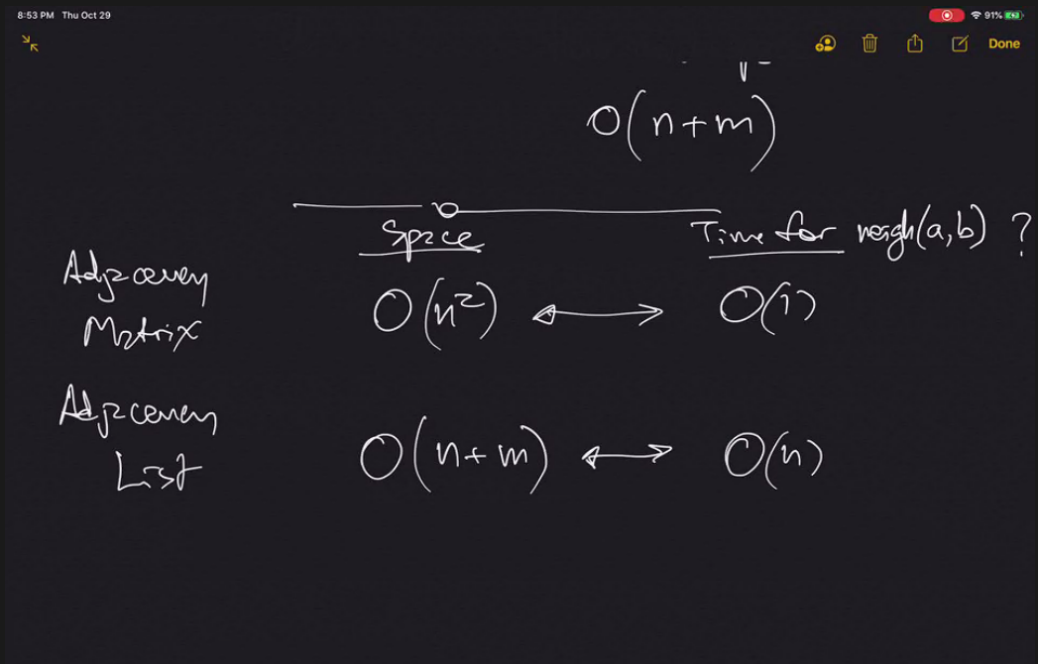 8:53 PM Thu Oct 29
91%
Done
O(n+m)
Space Time for neigh(a,b) ?
Adjacency
Matrix O(n²) ⟷ O(1)
Adjacency
List O(n+m) ⟷ O(n)